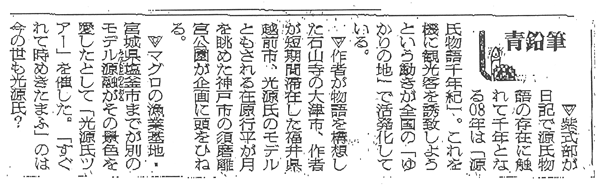 青鉛筆
▽紫式部が
日記で源氏物
語の存在に触
れて千年とな
る08年は「源
氏物語千年紀」。これを
機に観光客を誘致しよう
という動きが全国の「ゆ
かりの地」で活発化して
いる。
▽作者が物語を構想し
た石山寺の大津市、作者
が短期間滞在した福井県
越前市、光源氏のモデル
ともされる在原行平が月
を眺めた神戸市の須磨離
宮公園が企画に頭をひね
る。
▽マグロの漁業基地・
宮城県塩釜市までが別の
モデル源融がその景色を
愛したとして「光源氏ツ
アー」を催した。「すぐ
れて時めきたまふ」のは
今の世も光源氏?